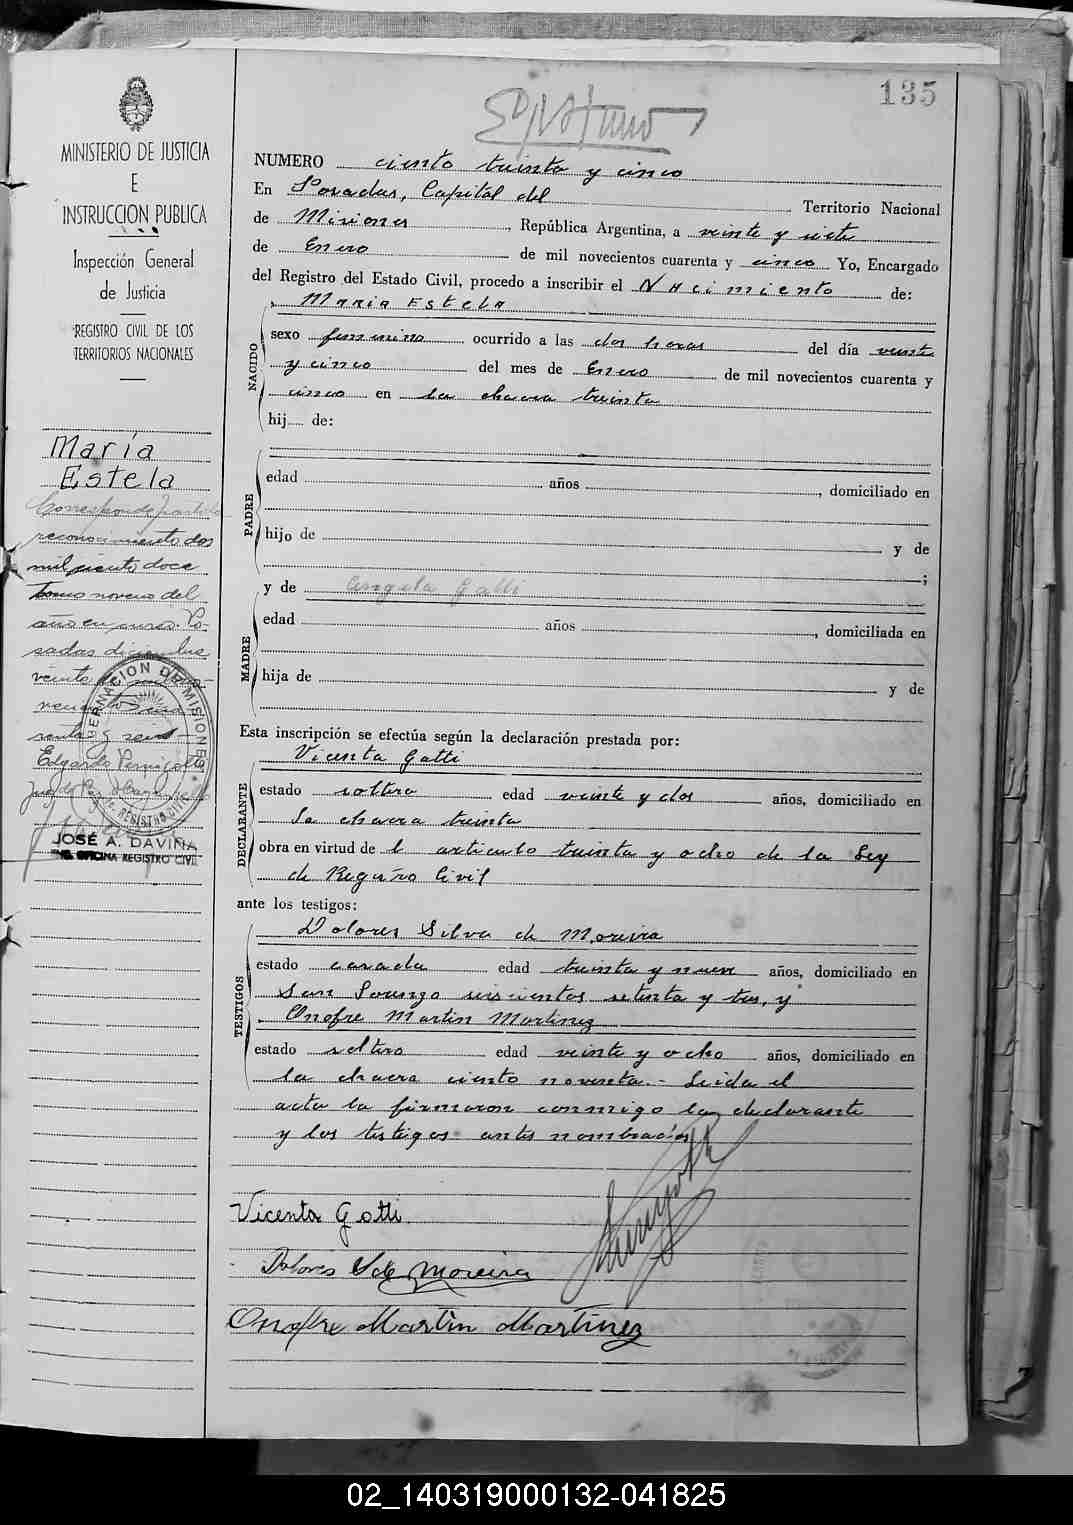 135
MINISTERIO DE JUSTICIA
E
INSTRUCCION PUBLICA
Inspección General
de Justicia
REGISTRO CIVIL DE LOS
TERRITORIOS NACIONALES
María
Estela
Corresponde
reconocimiento dos
mil ciento doce
tomo noveno del
año en curso. Po-
sadas diciembre
veinte
renta y seis
Edgardo
GOBERNACION DE MISIONES
REGISTRO CIVIL
JOSÉ A. DAVIÑA
OFICINA REGISTRO CIVIL
NUMERO ciento treinta y cinco
En Posadas, Capital del Territorio Nacional
de Misiones, República Argentina, a veinte y siete
de Enero de mil novecientos cuarenta y cinco Yo, Encargado
del Registro del Estado Civil, procedo a inscribir el Nacimiento de:
Maria Estela
NACIDO
sexo femenino ocurrido a las dos horas del día veinte
y cinco del mes de Enero de mil novecientos cuarenta y
cinco en la chacra treinta
hij.... de:
PADRE
edad años , domiciliado en
hijo de y de
;
y de Angela Gatti
MADRE
edad años , domiciliada en
hija de y de
Esta inscripción se efectúa según la declaración prestada por:
Vicenta Gatti
DECLARANTE
estado soltera edad veinte y dos años, domiciliado en
la chacra treinta
obra en virtud de l articulo treinta y ocho de la Ley
de Registro Civil
ante los testigos:
Dolores Silva de Moreira
TESTIGOS
estado casada edad treinta y nueve años, domiciliado en
San Lorenzo seiscientos setenta y tres, y
Onofre Martin Martinez
estado soltero edad veinte y ocho años, domiciliado en
la chacra ciento noventa.- Leida el
acta la firmaron conmigo la declarante
y los testigos antes nombrados
Vicenta Gatti.
Dolores S de Moreira
Onofre Martin Martinez
02_140319000132-041825